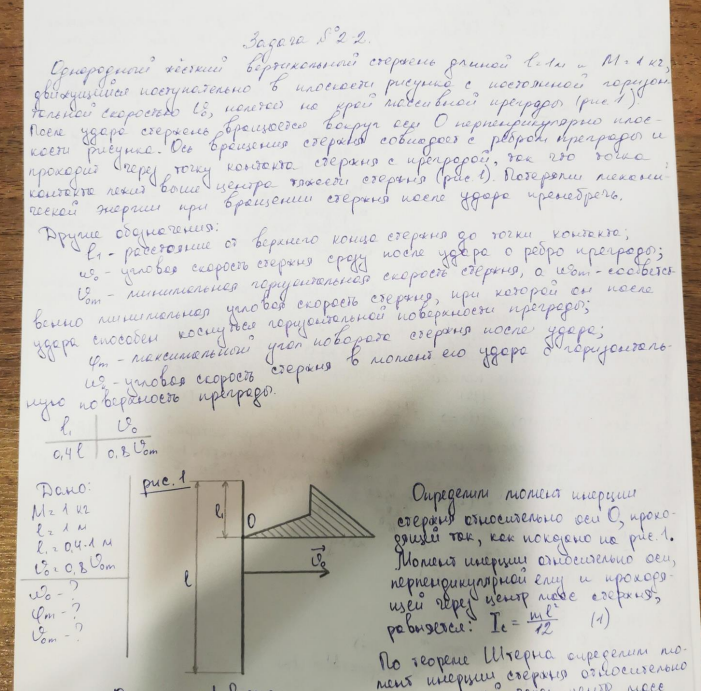 Задача №2-2.
Однородный жёсткий вертикальный стержень длиной l=1м и M=1кг,
движущийся поступательно в плоскости рисунка с постоянной горизон
тальной скоростью V₀, налетает на край массивной преграды (рис.1)
После удара стержень вращается вокруг оси O перпендикулярно плос-
кости рисунка. Ось вращения стержня совпадает с ребром преграды и
проходит через точку контакта стержня с преградой, так что точка
контакта лежит выше центра тяжести стержня (рис.1). Потерями механи-
ческой энергии при вращении стержня после удара пренебречь.
Другие обозначения:
l₁ - расстояние от верхнего конца стержня до точки контакта;
ω₀ - угловая скорость стержня сразу после удара о ребро преграды;
V₀m - минимальная горизонтальная скорость стержня, а ω₀m - соответст
венно минимальная угловая скорость стержня, при которой он после
удара способен коснуться горизонтальной поверхности преграды;
φm - максимальный угол поворота стержня после удара;
угловая скорость стержня в момент его удара о горизонталь-
ную поверхность преграды.
l₁ V₀
0,4l 0,8V₀m
Дано:
M=1 кг
l=1 м
l₁=0,4·1 м
V₀=0,8V₀m
ω₀-?
φm-?
V₀m-?
рис.1
l₁
O
l
V₀
Определим момент инерции
стержня относительно оси O, прохо-
дящей так, как показано на рис.1.
Момент инерции относительно оси,
перпендикулярной ему и проходя-
щей через центр масс стержня,
равняется: I_c = ml²/12 (1)
По теореме Штерна определим мо-
мент инерции стержня относительно